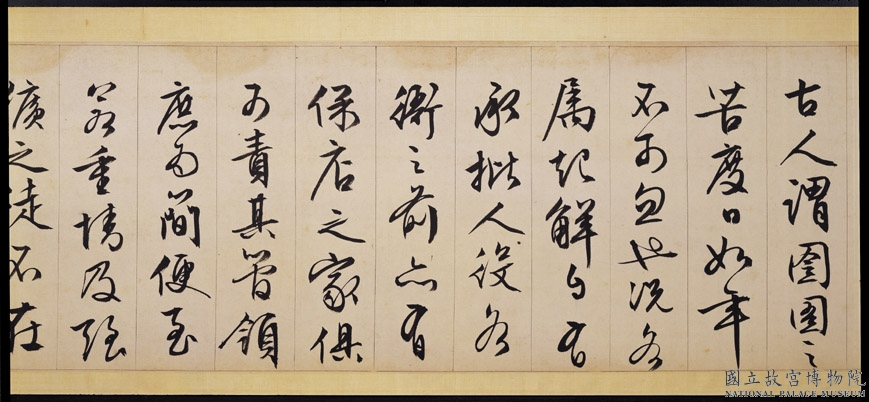 古人謂囹圄之
苦度日如年
不可忽也況各
属起解自有
承批人役各
衙之前亦有
保店之家俱
可責其管領
庶為簡便至
若重情及強
獷之徒不在
國立故宮博物院
NATIONAL PALACE MUSEUM